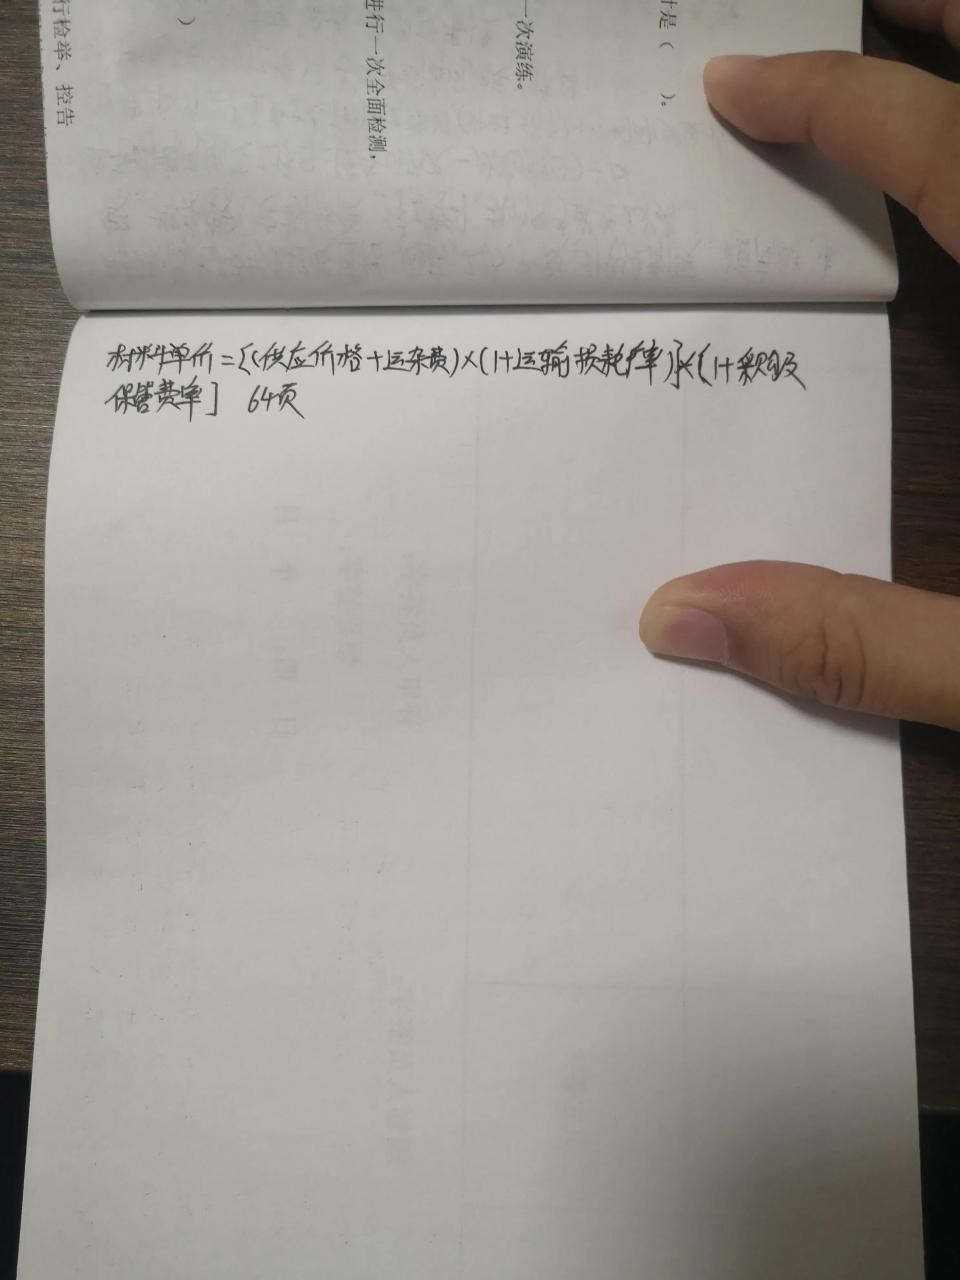 计是（ ）。
一次演练。
进行一次全面检测，
）
行检举、控告
材料单价=[(供应价格+运杂费)×(1+运输损耗率)]×[1+采购及
保管费率] 64页